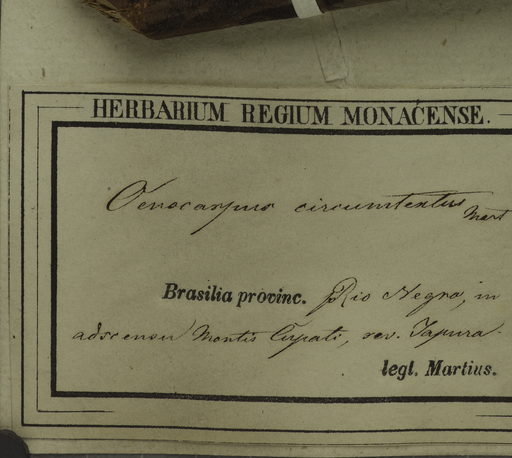 HERBARIUM REGIUM MONACENSE.
Oenocarpus circumtextus Mart
Brasilia provinc. Rio Negro, in
adscensu Montis Cupati, rev. Japura
legl. Martius.